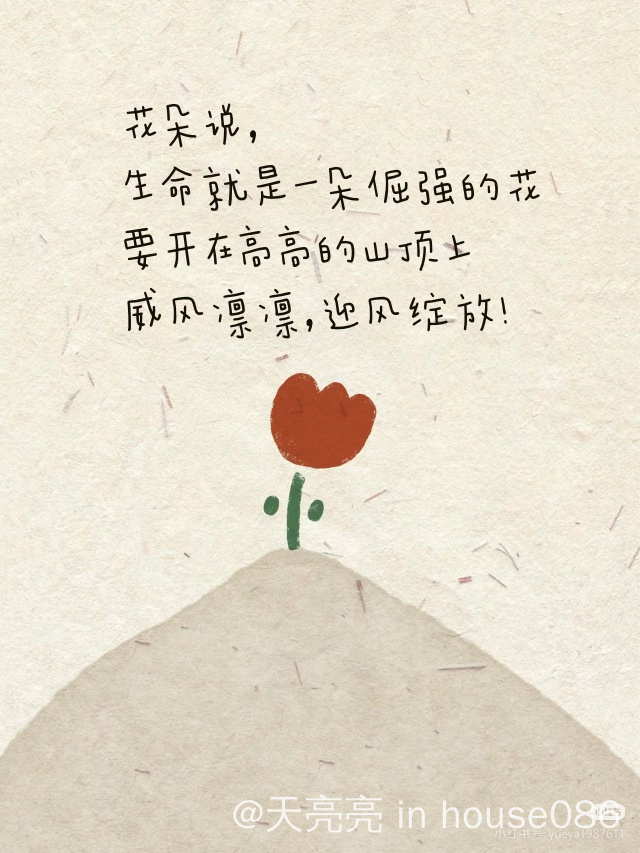 花朵说，
生命就是一朵倔强的花
要开在高高的山顶上
威风凛凛，迎风绽放！
@天亮亮 in house086
小红书号:yueya1987611